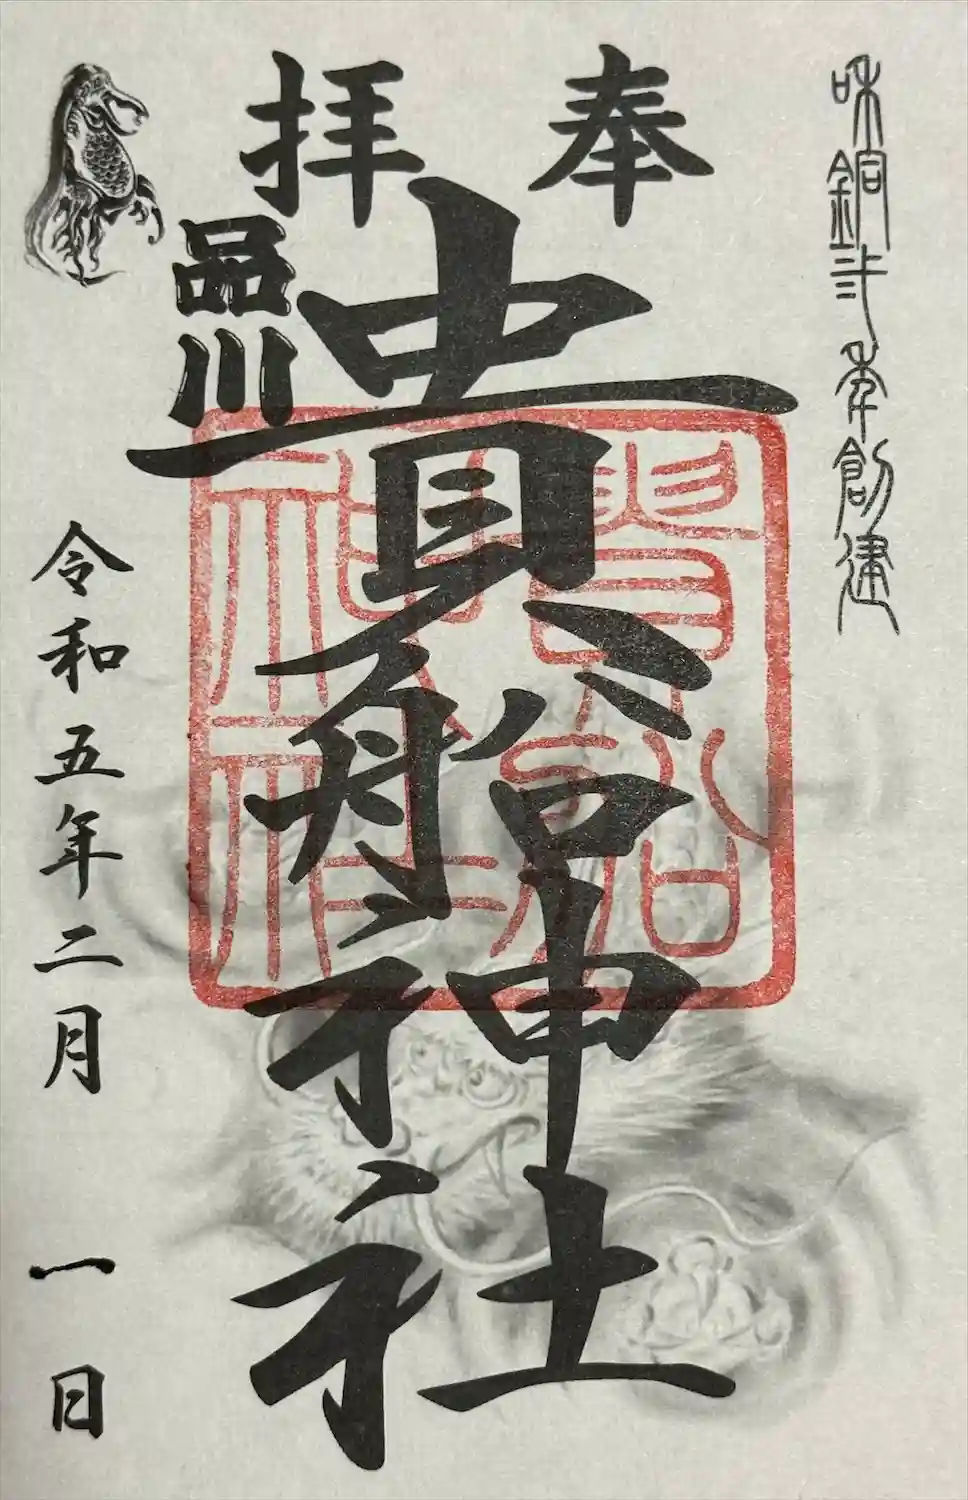 和銅弐年創建
奉拝
貴船神社
品川
令和五年二月一日
貴船神社